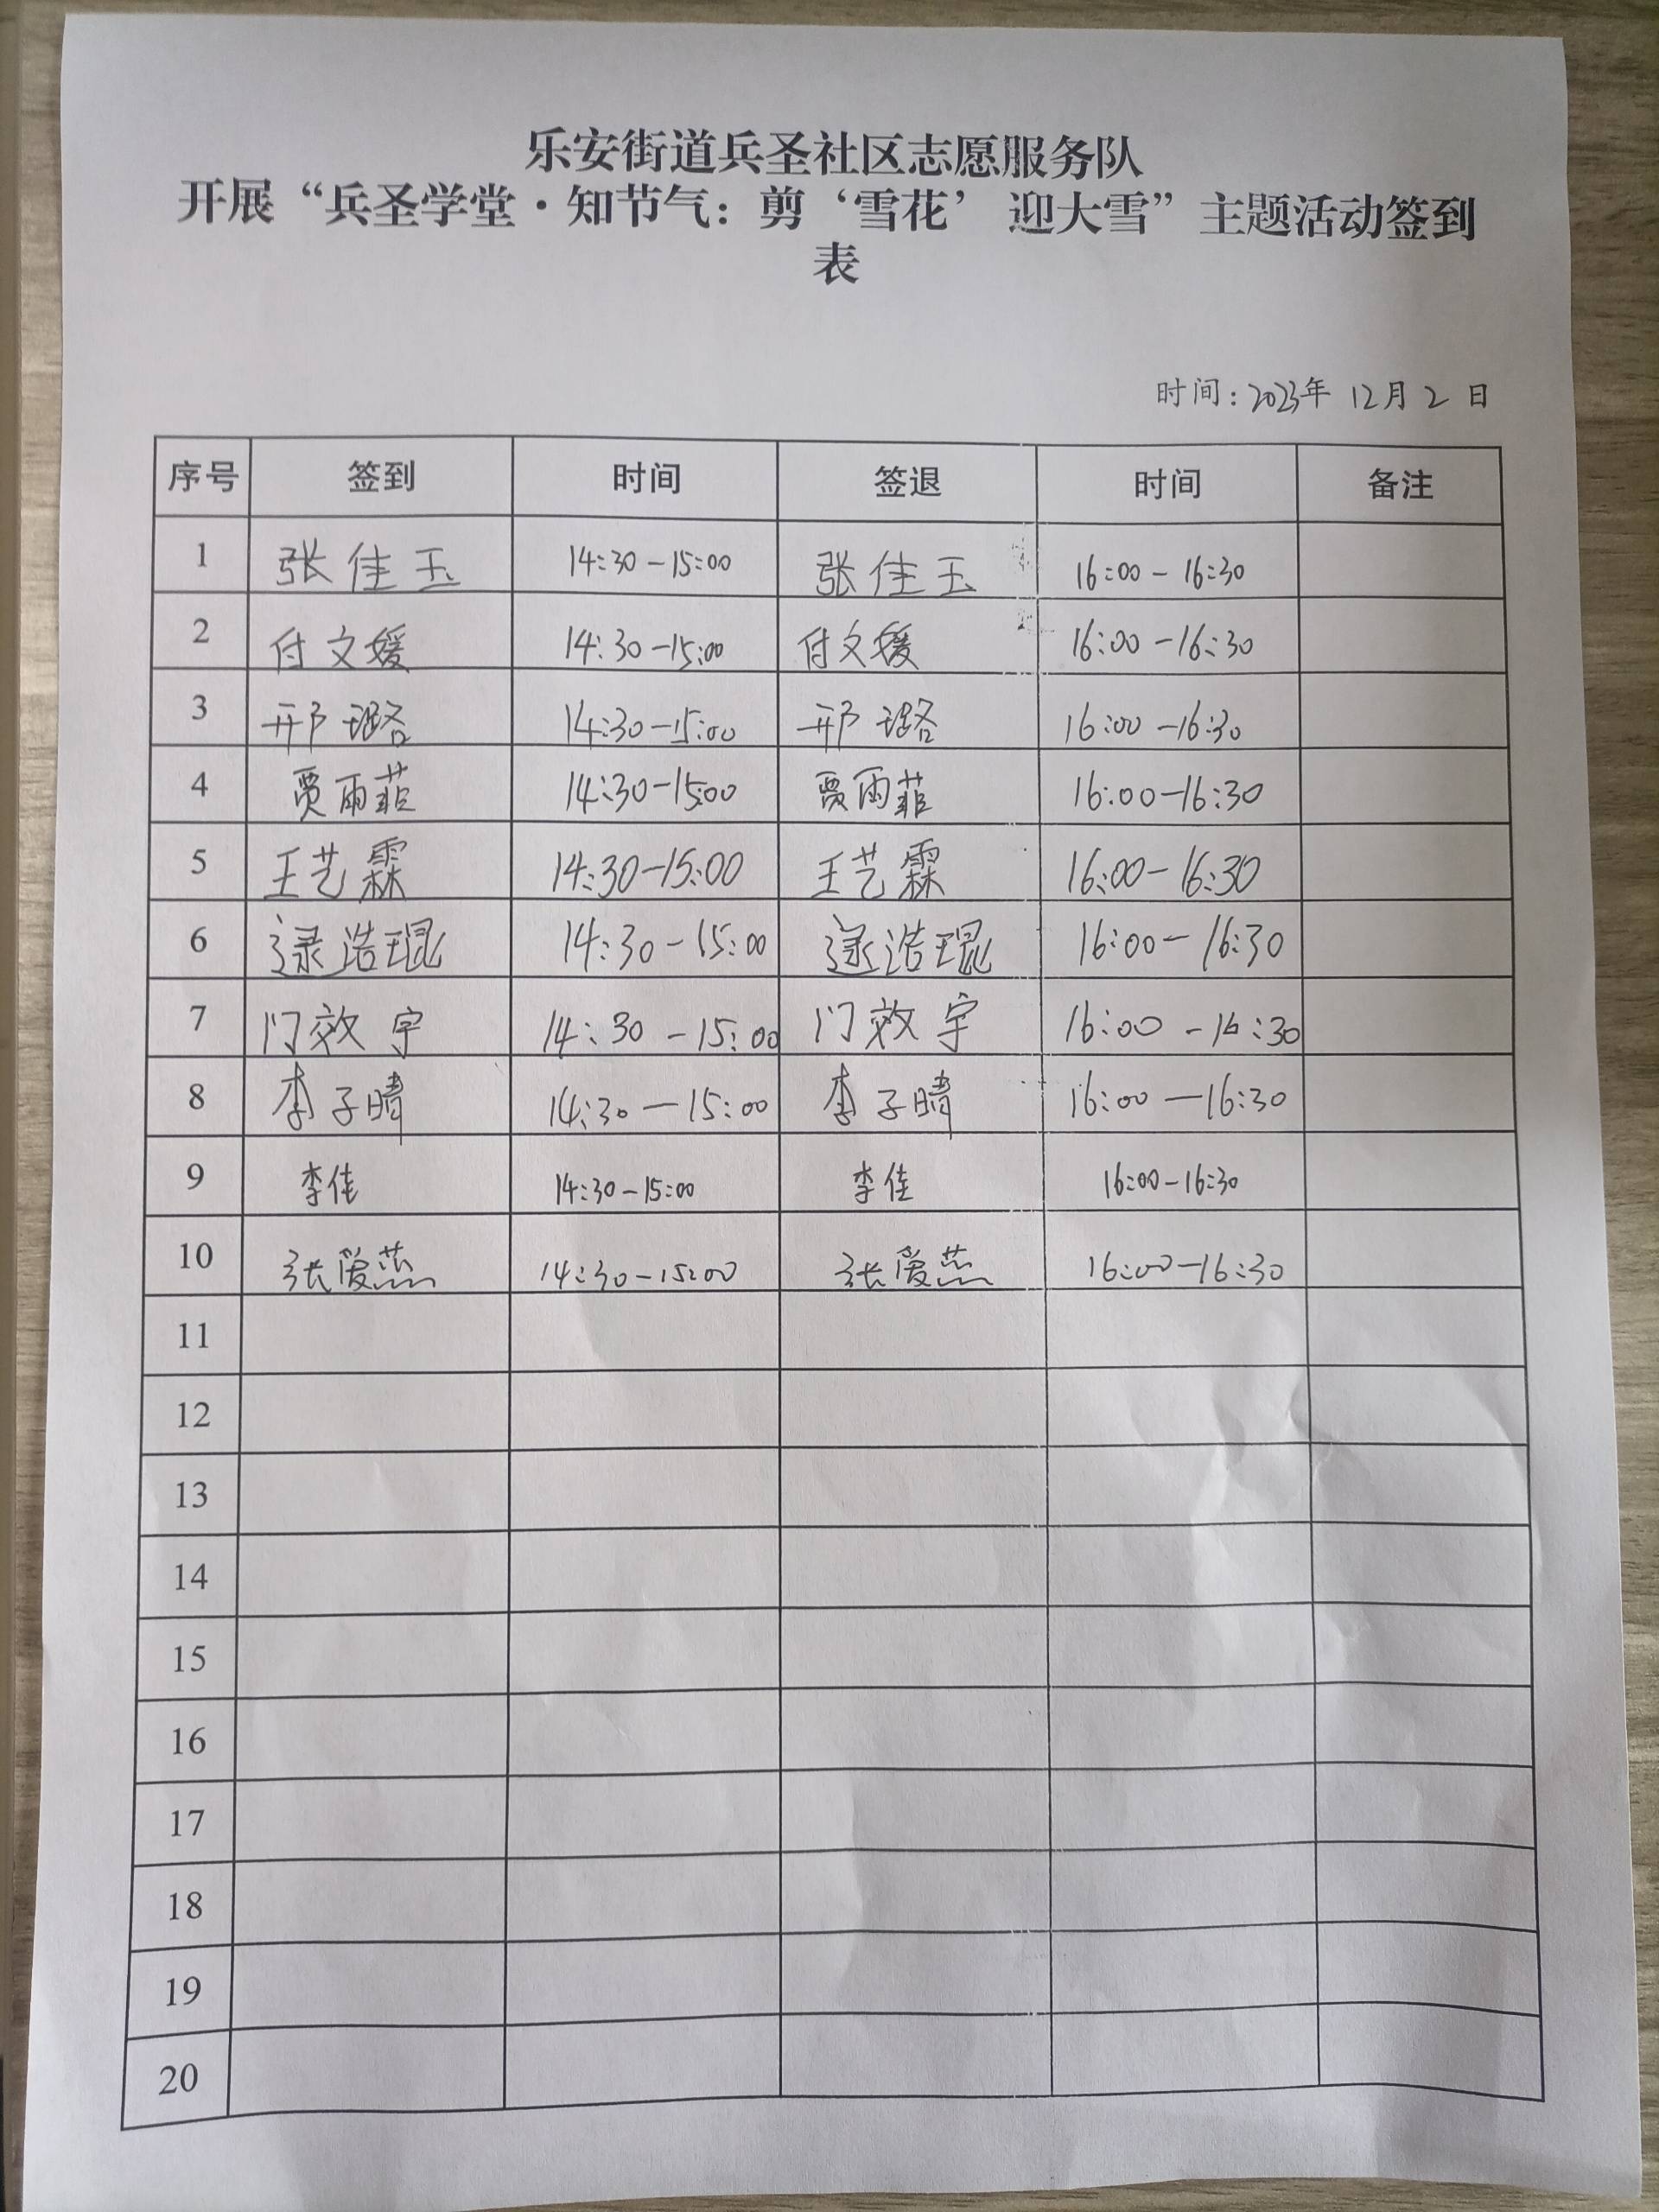 乐安街道兵圣社区志愿服务队
开展“兵圣学堂·知节气：剪‘雪花’迎大雪”主题活动签到
表
时间：2023年 12月 2 日
序号 签到 时间 签退 时间 备注
1 张佳玉 14:30-15:00 张佳玉 16:00-16:30
2 付文媛 14:30-15:00 付文媛 16:00-16:30
3 邢璐 14:30-15:00 邢璐 16:00-16:30
4 贾雨菲 14:30-15:00 贾雨菲 16:00-16:30
5 王艺霖 14:30-15:00 王艺霖 16:00-16:30
6 逯浩琨 14:30-15:00 逯浩琨 16:00-16:30
7 门效宇 14:30-15:00 门效宇 16:00-16:30
8 李子晴 14:30-15:00 李子晴 16:00-16:30
9 李佳 14:30-15:00 李佳 16:00-16:30
10 张爱燕 14:30-15:00 张爱燕 16:00-16:30
11
12
13
14
15
16
17
18
19
20